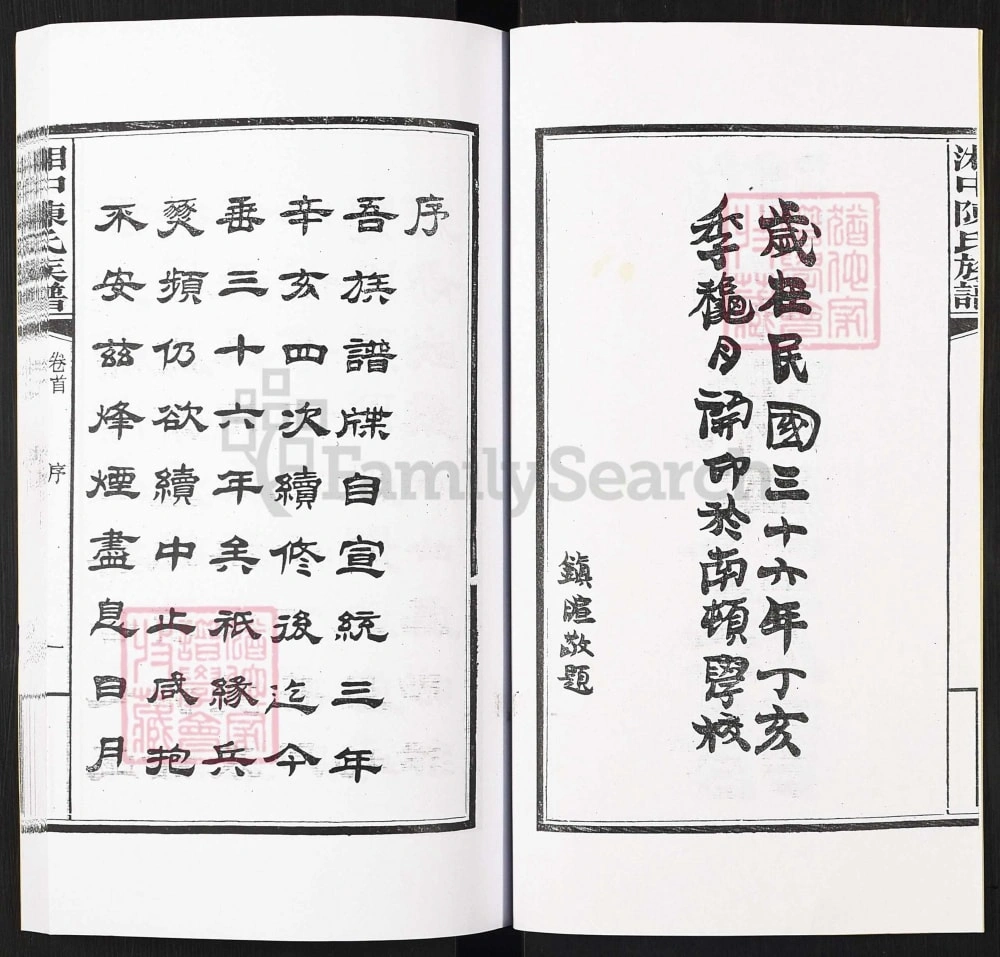 湘中陳氏族譜
歲在民國三十六年丁亥
季穐月開印於南頓學校
鎮暄敬題
序
吾族譜牒自宣統三年
辛亥四次續修後迄今
垂三十六年矣祇緣兵
燹頻仍欲續中止咸抱
不安茲烽煙盡息日月
湘中陳氏族譜
卷首
序
一
FamilySearch